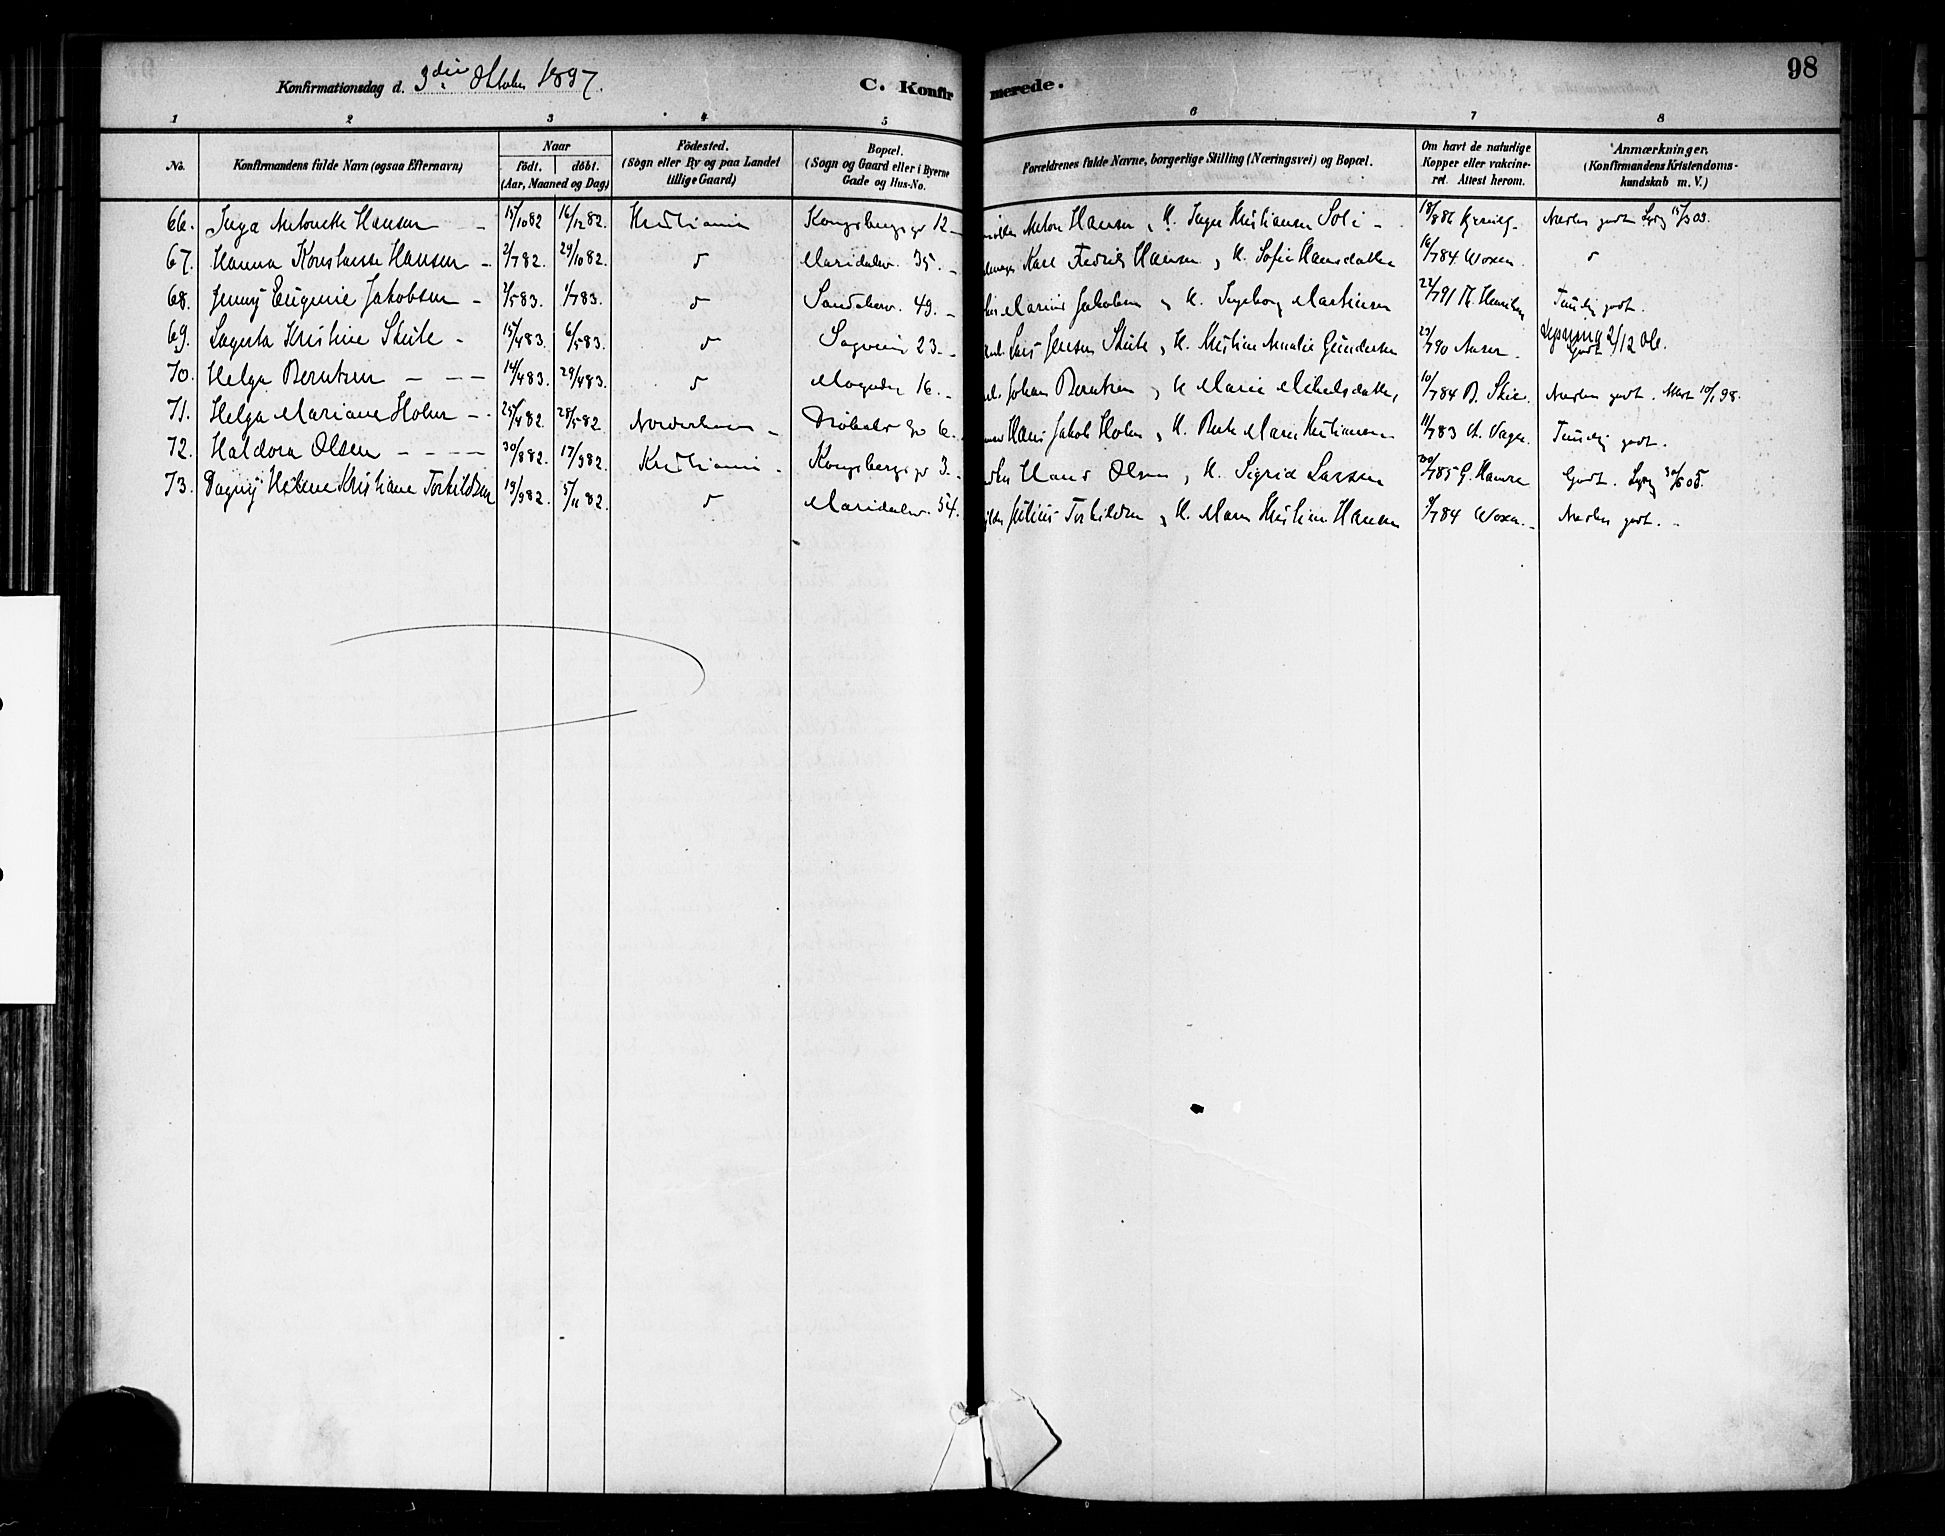 98
Konfirmationsdag d. 3die Oktober 1897.
C. Konfirmerede.
1 2 3 4 5 6 7 8
No. Konfirmandens fulde Navn (ogsaa Efternavn) Naar födt. döbt. (Aar, Maaned og Dag) Födested. (Sogn eller By og paa Landet tillige Gaard) Bopæl. (Sogn og Gaard eller i Byerne Gade og Hus-No. Forældrenes fulde Navne, borgerlige Stilling (Næringsvei) og Bopæl. Om havt de naturlige Kopper eller vakcineret. Attest herom. Anmærkninger, (Konfirmandens Kristendomskundskab m. V.)
66. Inga Antonette Hansen 15/1082 16/1282. Kristiania Kongsbergs gr 12 Anton Hansen, H. Inger Kristiansen Soli 18/886 Meget godt 15/3 03.
67. Hanna Konstanse Hansen 2/782. 29/1082. d Maridalsv. 35. Karl Fedrik Hansen, H. Sofie Hansdatter 16/784 Woxen. d
68. Jenny Eugenie Jakobsen /583. 1/783. d Sandakerv. 49. Marius Jakobsen, H. Ingeborg Martinsen 22/791 Temlig godt.
69. Lagerta Kristine Skute 15/483. 6/583. d Sagveien 23. Lars Jensen Skute, H. Kristine Amalie Gundersen 23/790 Aaser. Godt 2/12 06.
70. Helga Berntsen 14/483. 29/483. d 16. Johan Berntsen, H Marie Mikelsdatter, 10/784 B. Meget godt. 10/1 98.
71. Helga Mariane Holm 25/482. 28/582. Norderhov Drøbaks gr 6. Hans Jakob Holm, H. Marie Kristiansen 11/783 Temlig godt.
72. Haldora Olsen 30/882. 17/982. Kristiania Kongsbergs gr 3. Hans Olsen, H. Sigrid Larsen /785 G. Hansen Godt. 30/6 05.
73. Dagny Helene Kristiane Torkildsen 19/982. 5/1182. d Maridalsv. 54. Julius Torkildsen, H. Maren Kristine Hansen 9/784 Woxen. Meget godt.